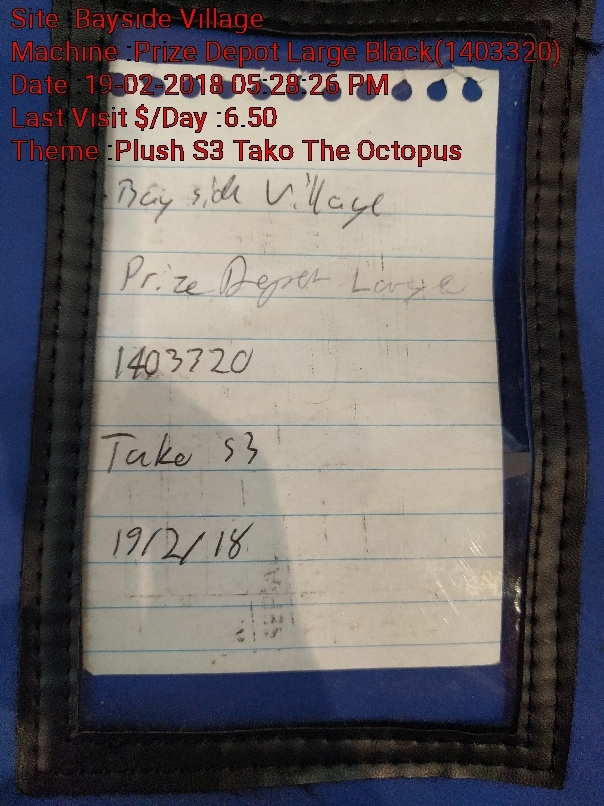 Site :Bayside Village
Machine :Prize Depot Large Black(1403320)
Date :19-02-2018 05:28:26 PM
Last Visit $/Day :6.50
Theme :Plush S3 Tako The Octopus
Bayside Village
Prize Depot Large
1403320
Tako S3
19/2/18